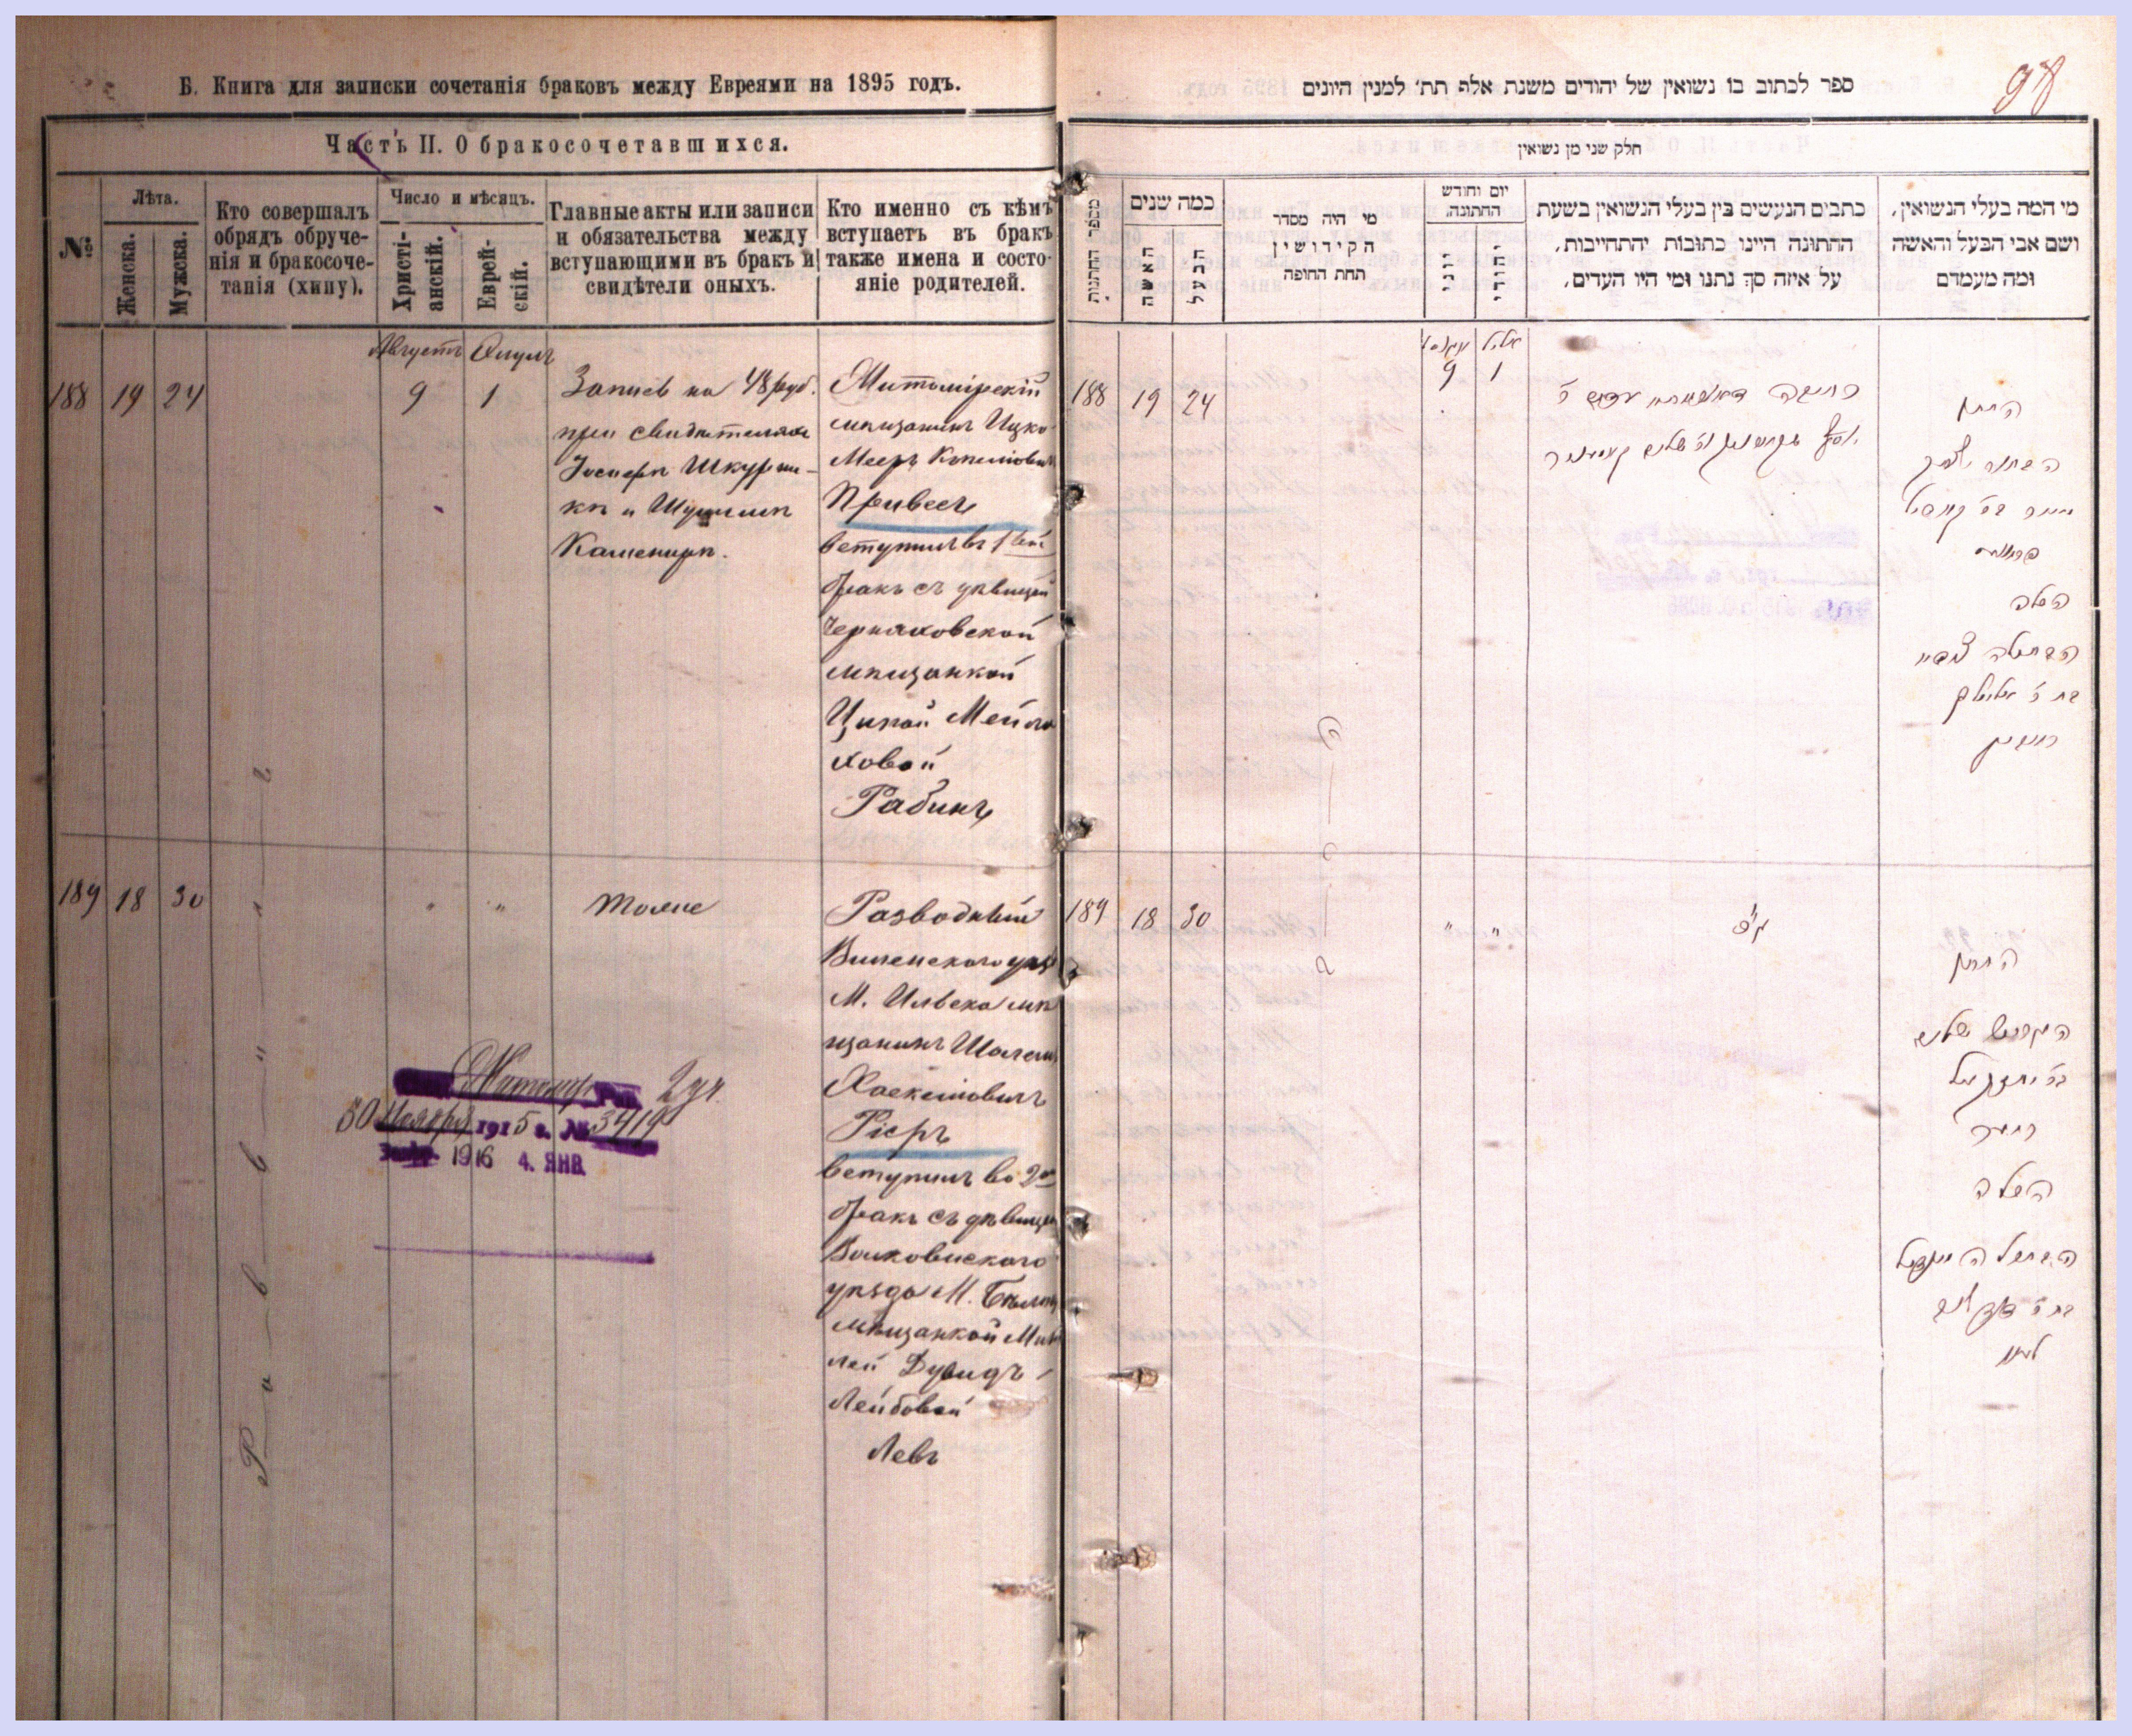 Б. Книга для записки сочетанія браковъ между Евреями на 1895 годъ.
Часть II. О бракосочетавшихся.
№
Лѣта.
Женска.
Мужска.
Кто совершалъ
обрядъ обруче-
нія и бракосоче-
танія (хипу).
Число и мѣсяцъ.
Христі-
анскій.
Еврей-
скій.
Главные акты или записи
и обязательства между
вступающими въ бракъ и
свидѣтели оныхъ.
Кто именно съ кѣмъ
вступаетъ въ бракъ
также имена и состо-
яніе родителей.
Августъ Элулъ
188 19 24 9 1
Запись на 48 руб.
при свидѣтеляхъ
Іосифѣ Шкурни-
кѣ и
Каменирѣ.
Житомірскій
мѣщанинъ Ицко
Мееръ Копелiовичъ
Привесъ
вступилъ въ 1ый
бракъ съ дѣвицей
Черняховской
мѣщанкой
Ципой Мейла
ховой
Рабинъ
189 18 30 " "
Тоже
Разводный
Виленскаго уѣз
М. Ильска мѣ
щанинъ Шолемъ
Хаскелiовичъ
Рісръ
вступилъ во 2ой
бракъ съ дѣвицей
Волковискаго
уѣзда М.
мѣщанкой
лей Дувидъ-
Лейбовой
Левъ
Раввинъ
2 уч.
30 Ноября 1915 г. № 3419
1916 4. ЯНВ
98
ספר לכתוב בו נשואין של יהודים משנת אלף תת׳ למנין היונים
חלק שני מן נשואין
מספר החתונות
כמה שנים
האשה
הבעל
מי היה מסדר
הקידושין
תחת החופה
יום וחודש
החתונה.
יווני
יהודי
כתבים הנעשים בין בעלי הנשואין בשעת
החתונה היינו כתובות יהתחייבות,
על איזה סך נתנו ומי היו העדים,
מי המה בעלי הנשואין,
ושם אבי הבעל והאשה
ומה מעמדם
אויגוסט אלול
188 19 24 9 1
החתן
הבחור יצחק
מאיר בר׳ קאפיל
פריוועס
הכלה
הבתולה ציפע
בת ר׳
ראבין
189 18 30 " "
החתן
שלום
בר׳ יחזקאל
הכלה
הבתולה